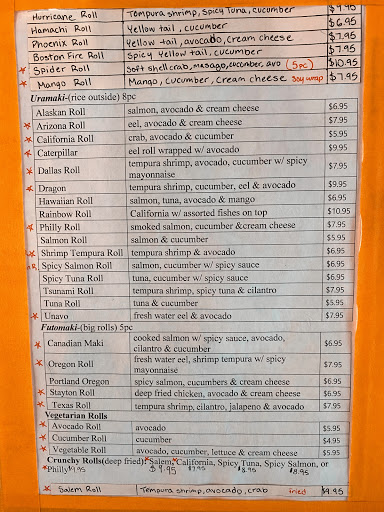 Hurricane Roll Tempura shrimp, Spicy Tuna, cucumber $7.95
Hamachi Roll Yellow tail, cucumber $6.95
Phoenix Roll Yellow tail, avocado, cream cheese $7.95
Boston Fire Roll Spicy yellow tail, cucumber $7.95
* Spider Roll Soft shell crab, masago, cucumber, avo (5pc) $10.95
* Mango Roll Mango, cucumber, cream cheese soy wrap $7.95
Uramaki-(rice outside) 8pc
Alaskan Roll salmon, avocado & cream cheese $6.95
* Arizona Roll eel, avocado & cream cheese $7.95
* California Roll crab, avocado & cucumber $5.95
* Caterpillar eel roll wrapped w/ avocado $9.95
* Dallas Roll tempura shrimp, avocado, cucumber w/ spicy mayonnaise $7.95
* Dragon tempura shrimp, cucumber, eel & avocado $9.95
Hawaiian Roll salmon, tuna, avocado & mango $6.95
Rainbow Roll California w/ assorted fishes on top $10.95
* Philly Roll smoked salmon, cucumber &cream cheese $7.95
Salmon Roll salmon & cucumber $5.95
* Shrimp Tempura Roll tempura shrimp & avocado $6.95
Spicy Salmon Roll salmon, cucumber w/ spicy sauce $6.95
Spicy Tuna Roll tuna, cucumber w/ spicy sauce $6.95
Tsunami Roll tempura shrimp, spicy tuna & cilantro $7.95
Tuna Roll tuna & cucumber $5.95
* Unavo fresh water eel & avocado $7.95
Futomaki-(big rolls) 5pc
* Canadian Maki cooked salmon w/ spicy sauce, avocado, cilantro & cucumber $6.95
* Oregon Roll fresh water eel, shrimp tempura w/ spicy mayonnaise $7.95
Portland Oregon spicy salmon, cucumbers & cream cheese $6.95
* Stayton Roll deep fried chicken, avocado & cream cheese $6.95
* Texas Roll tempura shrimp, cilantro, jalapeno & avocado $7.95
Vegetarian Rolls
* Avocado Roll avocado $5.95
* Cucumber Roll cucumber $4.95
* Vegetable Roll avocado, cucumber, lettuce & cream cheese $5.95
Crunchy Rolls(deep fried):*Salem,*California, Spicy Tuna, Spicy Salmon, or
*Philly $9.95 $9.95 $7.95 $8.95 $8.95
* Salem Roll Tempura shrimp, avocado, crab fried $9.95